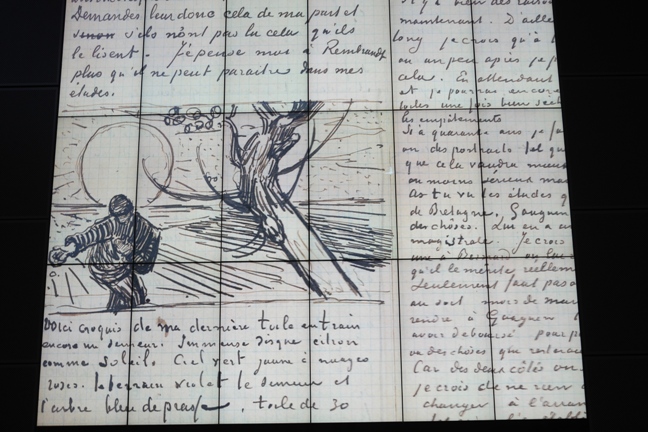 Demandes leur donc cela de ma part et
sinon s'ils n'ont pas lu cela qu'ils
le lisent. je pense moi à Rembrandt
plus qu'il ne peut paraître dans mes
études.
Voici croquis de ma dernière toile en train
encore un semeur. Immense disque citron
comme soleil. Ciel vert jaune à nuages
roses. le terrain violet le semeur et
l'arbre bleu de prusse. toile de 30
maintenant. D'aille
long je crois qu'à
ou un peu après je
cela. En attendant
et je pourrai encore
toiles une fois bien séch
les empâtements
Si à quarante ans je fa
on des portraits tel qu
que cela vaudra mieux
ou moins sérieux
As tu vu les études q
de Bretagne, Gauguin
des choses. Lui en a
magistrale. je crois
une à Bernard ou lui
qu'il le mérite réellem
Seulement faut pas o
au sort moins de
rendre à Gauguin
avoir déboursé pour
ou des choses que
Car des deux côtés on
je crois de ne rien
changer à l'arran